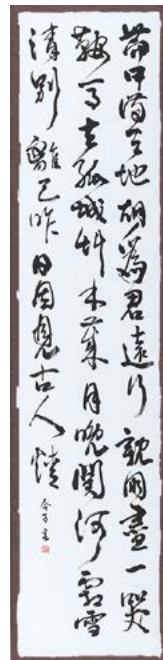 帶甲滿天地胡爲君遠行親朋盡一哭
鞍馬去孤城草木歲月晚關河霜雪
清別離已昨日因見古人情